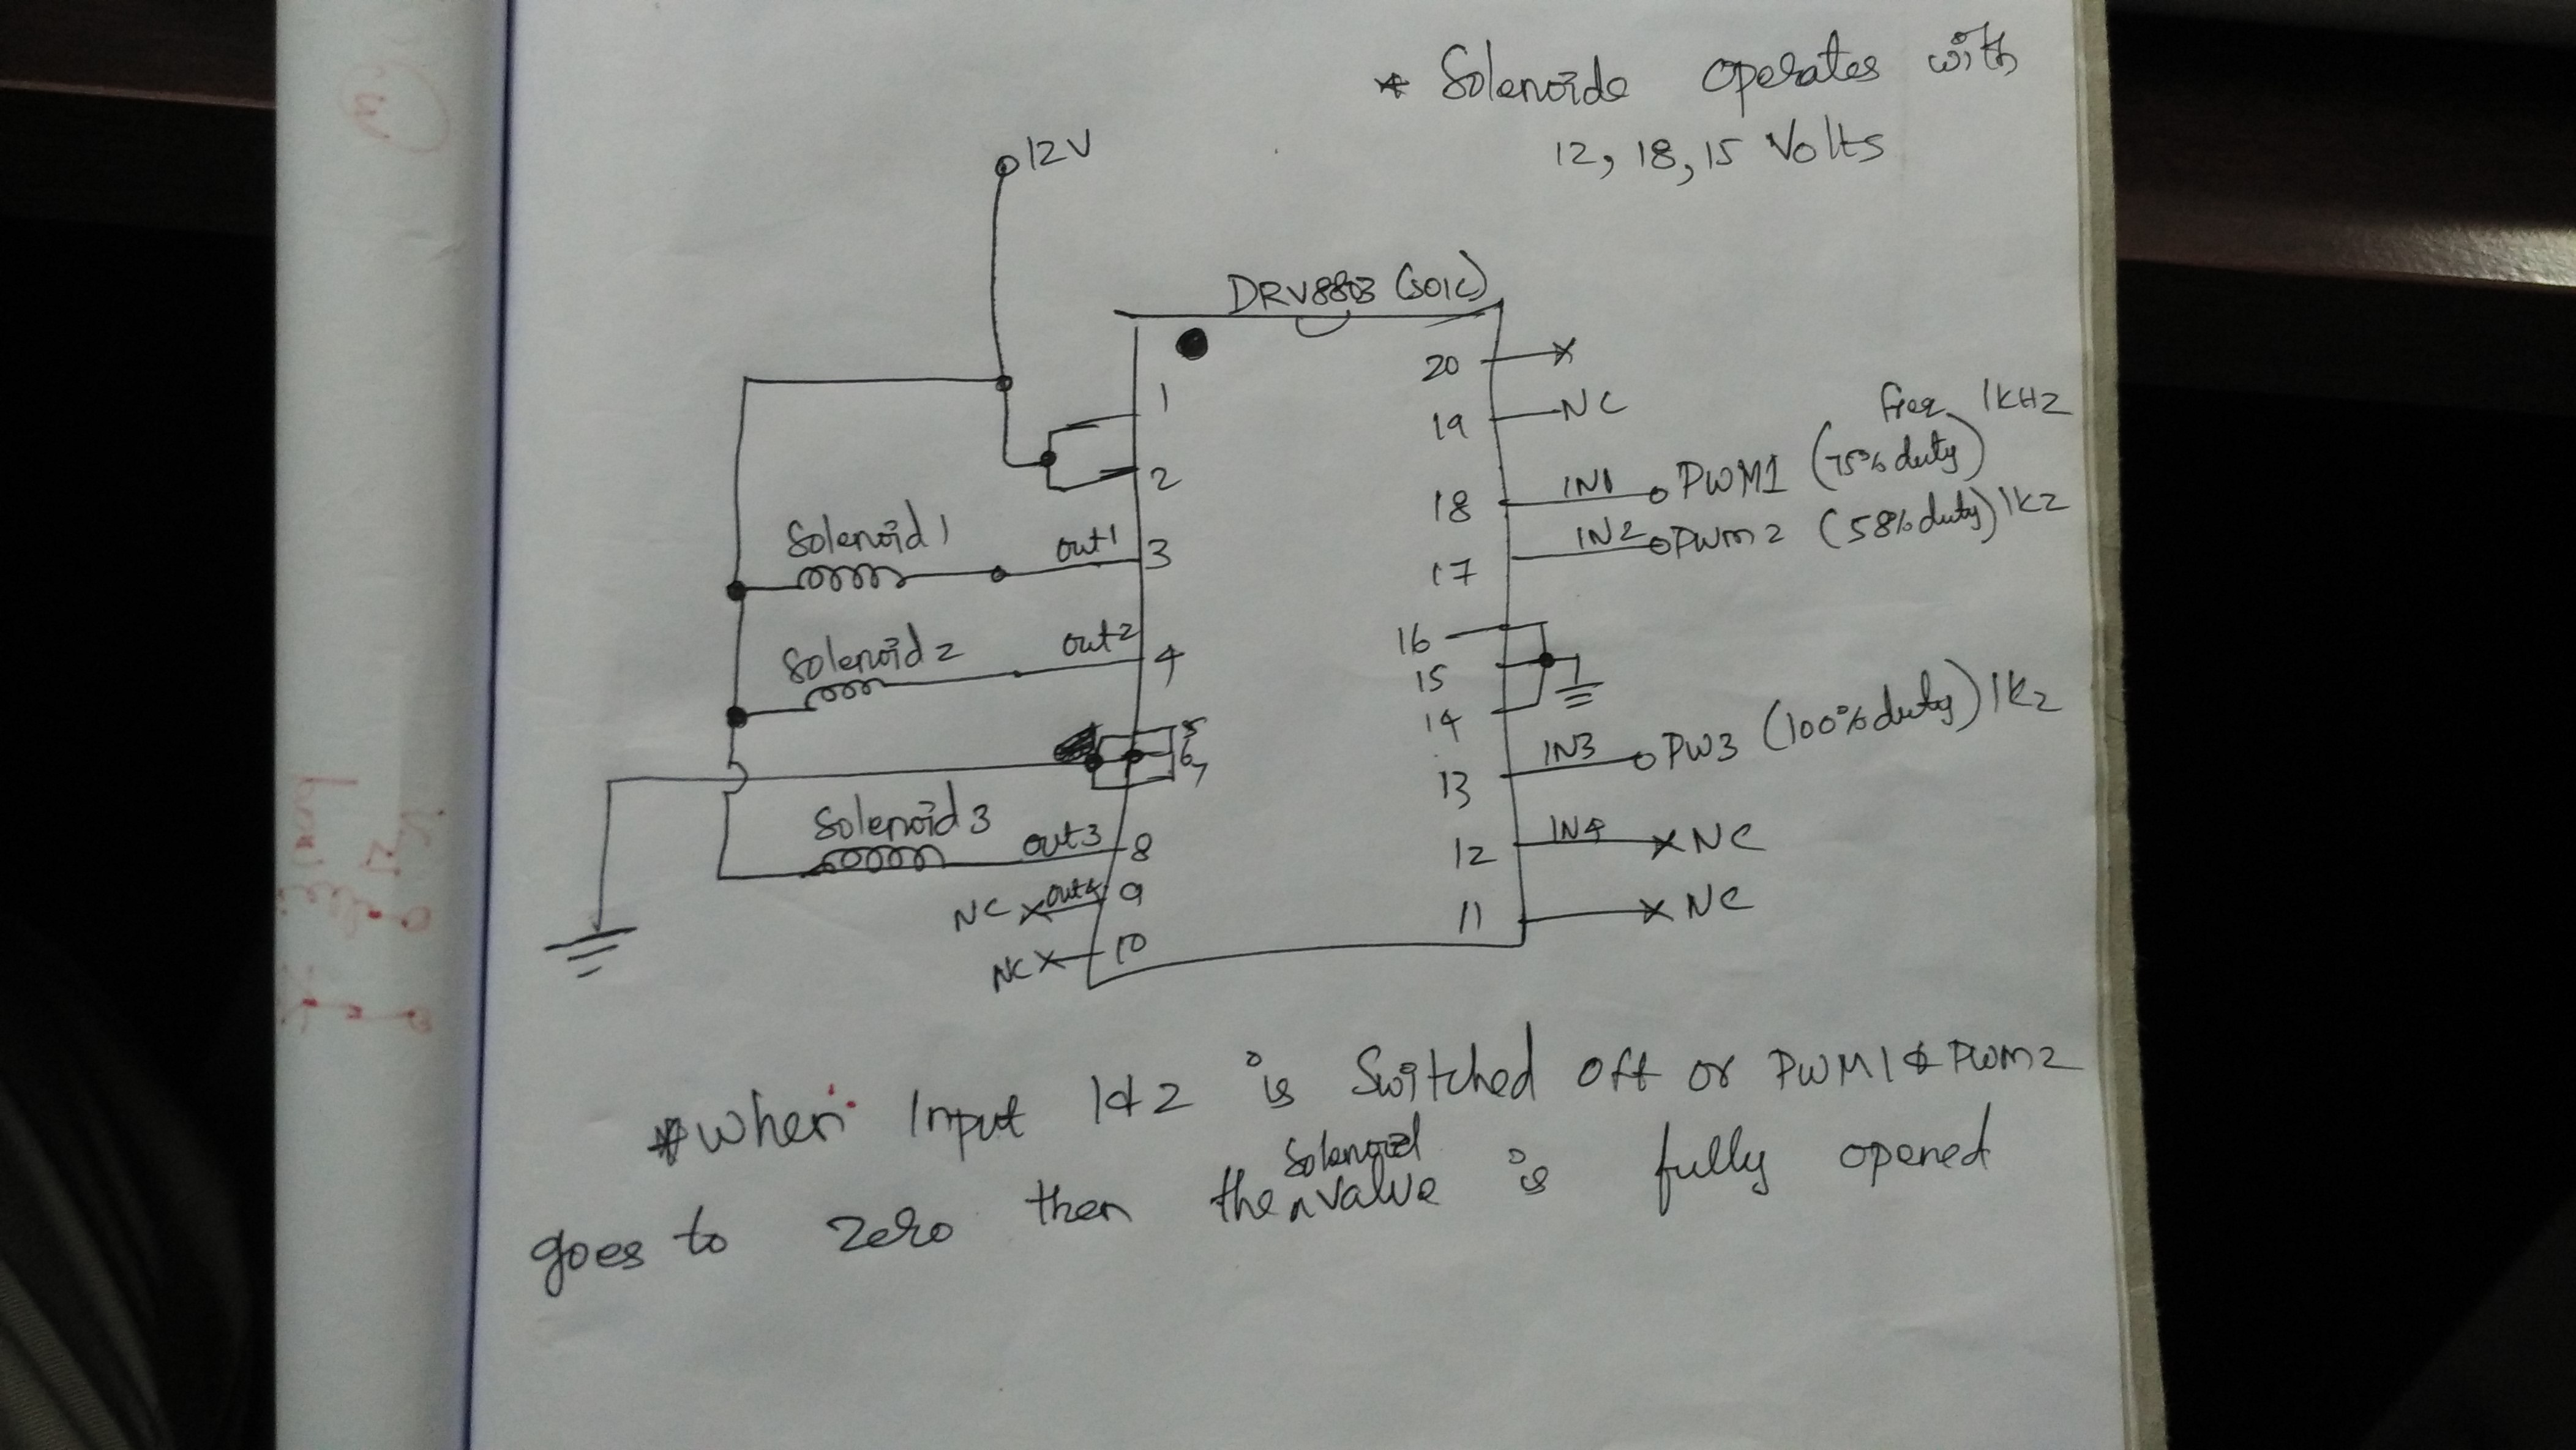 * Solenoide operates with
12, 18, 15 Volts
12V
DRV8803 (SOIC)
1
2
Solenoid 1 out1 3
Solenoid 2 out2 4
5
6
7
Solenoid 3 out3 8
NC out4 9
NC 10
20
19 NC
freq 1KHZ
18 IN1 PWM1 (75% duty)
17 IN2 PWM2 (58% duty) 1KZ
16
15
14
13 IN3 PW3 (100% duty) 1KZ
12 IN4 NC
11 NC
* When Input 1&2 is Switched off or PWM1 & PWM2
goes to zero then the solenoid valve is fully opened